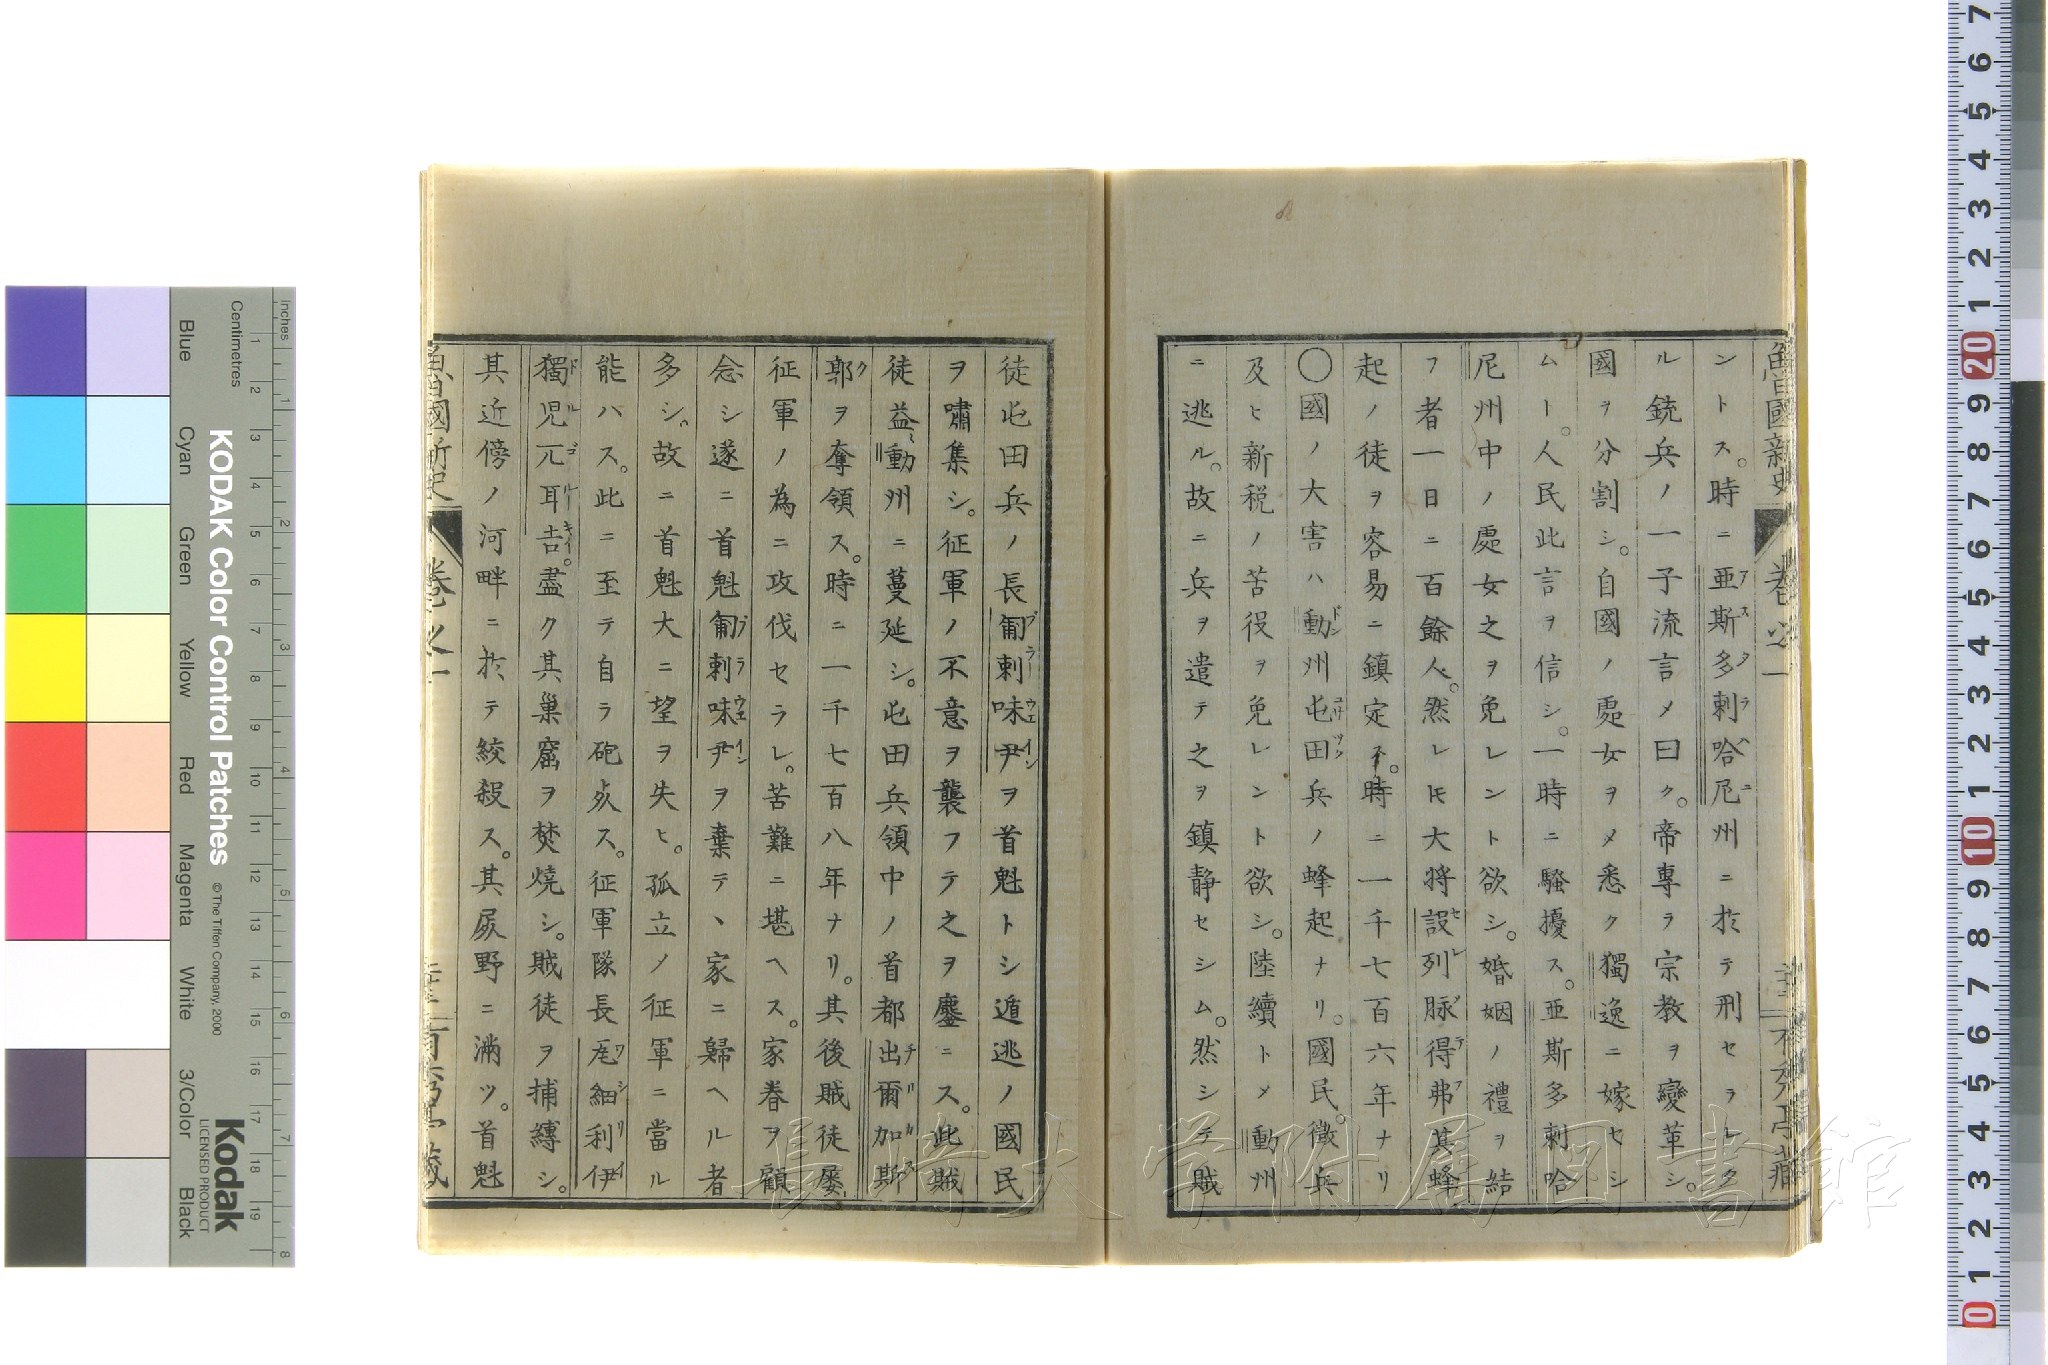 魯西亞國新史 卷之一 不秀亭藏
ントス。時ニ亜斯多剌哈尼州ニ於テ刑セラレタ
ル銃兵ノ一子流言メ曰ク。帝専ラ宗教ヲ變革シ。
國ヲ分割シ。自國ノ處女ヲメ悉ク獨逸ニ嫁セシ
ムト。人民此言ヲ信シ。一時ニ騒擾ス。亜斯多刺哈
尼州中ノ處女之ヲ免レント欲シ。婚姻ノ禮ヲ結
フ者一日ニ百餘人。然レ𪜈大将設列脉得弗其蜂
起ノ徒ヲ容易ニ鎮定ス。時ニ一千七百六年ナリ
〇國ノ大害ハ動州屯田兵ノ蜂起ナリ。國民。徴兵
及ヒ新税ノ苦役ヲ免レント欲シ。陸續トメ動州
ニ逃ル。故ニ兵ヲ遣テ之ヲ鎮静セシム。然シテ賊
徒屯田兵ノ長匍剌味尹ヲ首魁トシ遁逃ノ國民
ヲ嘯集シ。征軍ノ不意ヲ襲フテ之ヲ鏖ニス。此賊
徒益〻動州ニ蔓延シ。屯田兵領中ノ首都出爾加斯
郭ヲ奪領ス。時ニ一千七百八年ナリ。其後賊徒屡〻
征軍ノ為ニ攻伐セラレ。苦難ニ堪ヘス。家眷ヲ顧
念シ遂ニ首魁匍剌味尹ヲ棄テヽ家ニ歸ヘル者
多シ。故ニ首魁大ニ望ヲ失ヒ。孤立ノ征軍ニ當ル
能ハス。此ニ至テ自ラ砲㱐ス。征軍隊長窊細利伊
獨児兀耳吉。盡ク其巣窟ヲ焚焼シ。賊徒ヲ捕縛シ。
其近傍ノ河畔ニ於テ絞殺ス。其屍野ニ満ツ。首魁